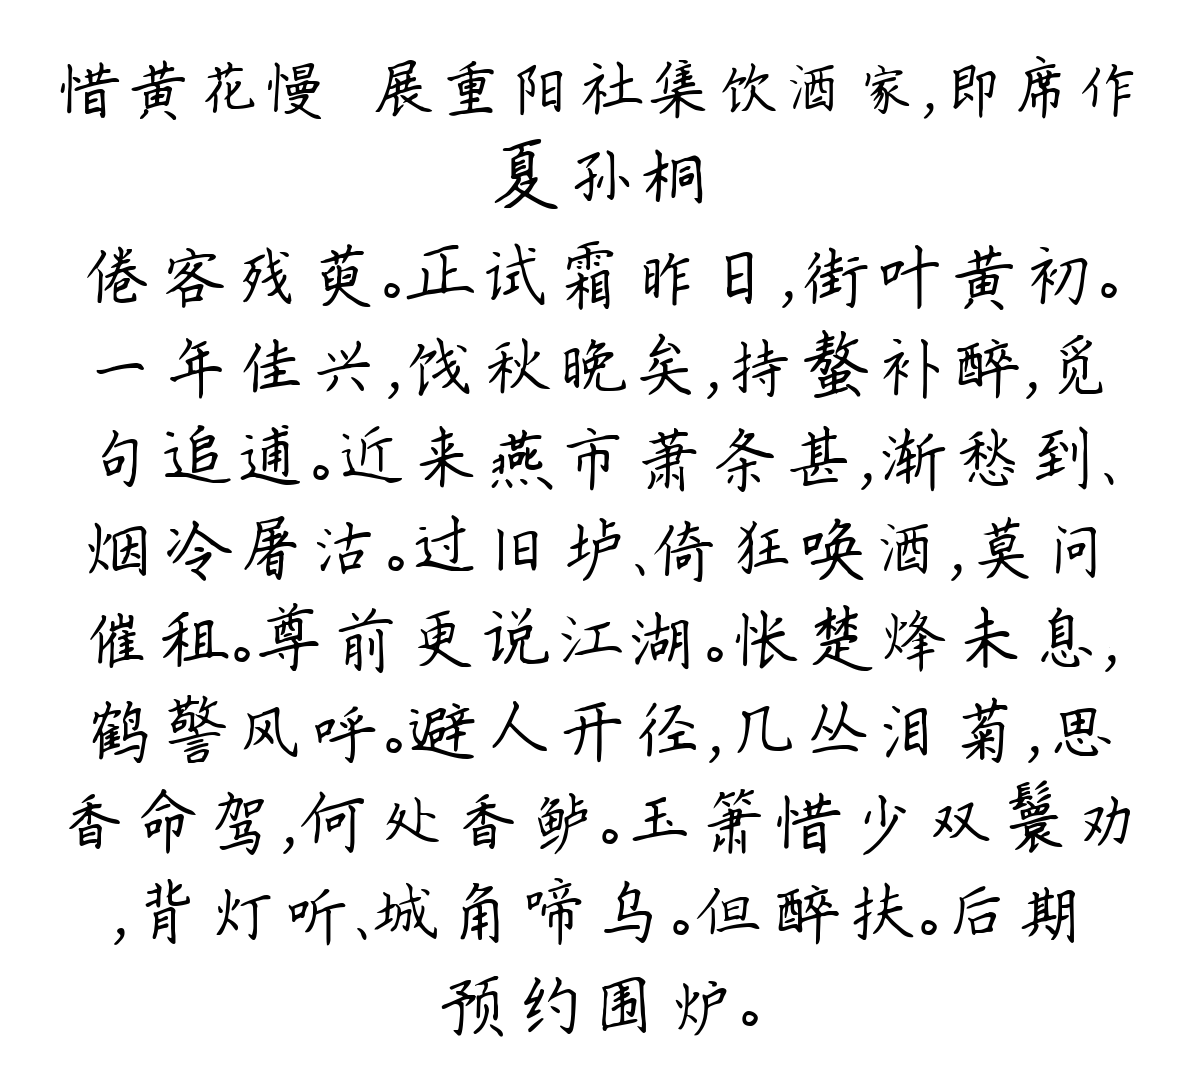 惜黄花慢 展重阳社集饮酒家,即席作
夏孙桐
倦客残萸。正试霜昨日,街叶黄初。
一年佳兴,饯秋晚矣,持螯补醉,觅
句追逋。近来燕市萧条甚,渐愁到、
烟冷屠沽。过旧垆、倚狂唤酒,莫问
催租。尊前更说江湖。怅楚烽未息,
鹤警风呼。避人开径,几丛泪菊,思
香命驾,何处香鲈。玉箫惜少双鬟劝
,背灯听、城角啼乌。但醉扶。后期
预约围炉。